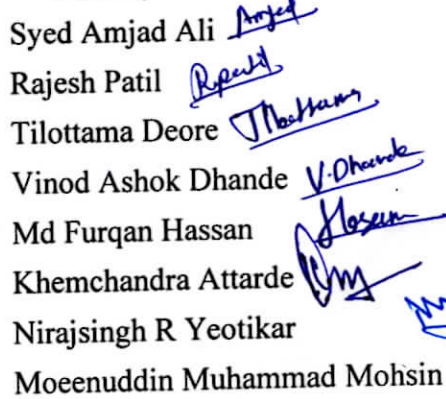 Syed Amjad Ali Amjad
Rajesh Patil
Tilottama Deore
Vinod Ashok Dhande V. Dhande
Md Furqan Hassan
Khemchandra Attarde
Nirajsingh R Yeotikar
Moeenuddin Muhammad Mohsin